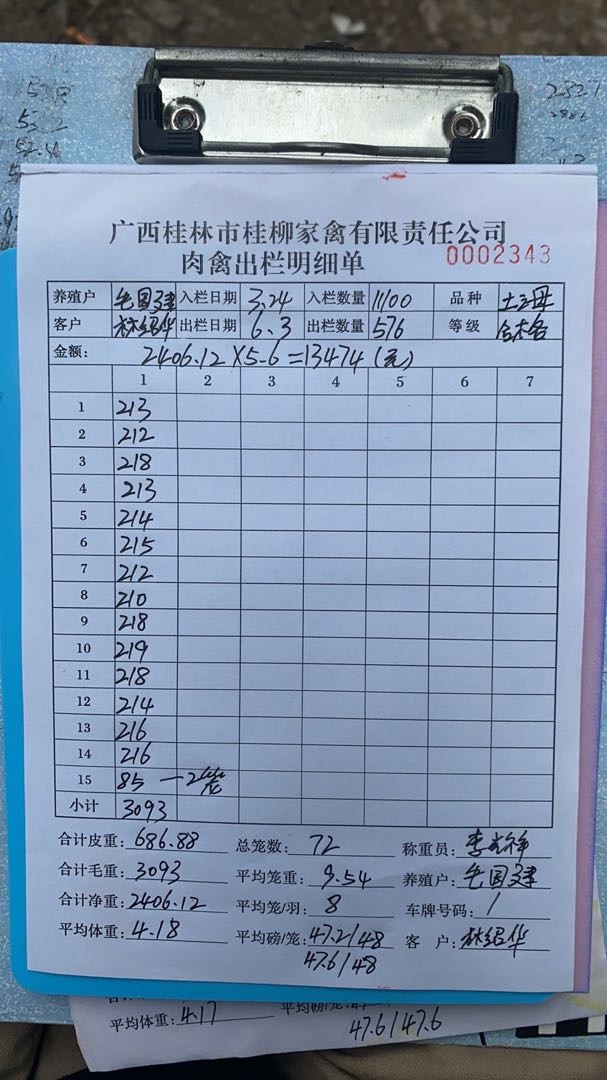 1518
2327
广西桂林市桂柳家禽有限责任公司
肉禽出栏明细单 0002343
养殖户 毛国建 入栏日期 3.24 入栏数量 1100 品种 土三母
客户 林绍华 出栏日期 6.3 出栏数量 576 等级 合格
金额: 2406.12×5.6=13474(元)
1 2 3 4 5 6 7
1 213
2 212
3 218
4 213
5 214
6 215
7 212
8 210
9 218
10 219
11 218
12 214
13 216
14 216
15 85 一2笼
小计 3093
合计皮重: 686.88 总笼数: 72 称重员:
合计毛重: 3093 平均笼重: 9.54 养殖户: 毛国建
合计净重: 2406.12 平均笼/羽: 8 车牌号码: /
平均体重: 4.18 平均磅/笼: 47.2/48 客 户: 林绍华
47.6/48
平均体重: 4.17 平均磅/笼:
47.6/47.6